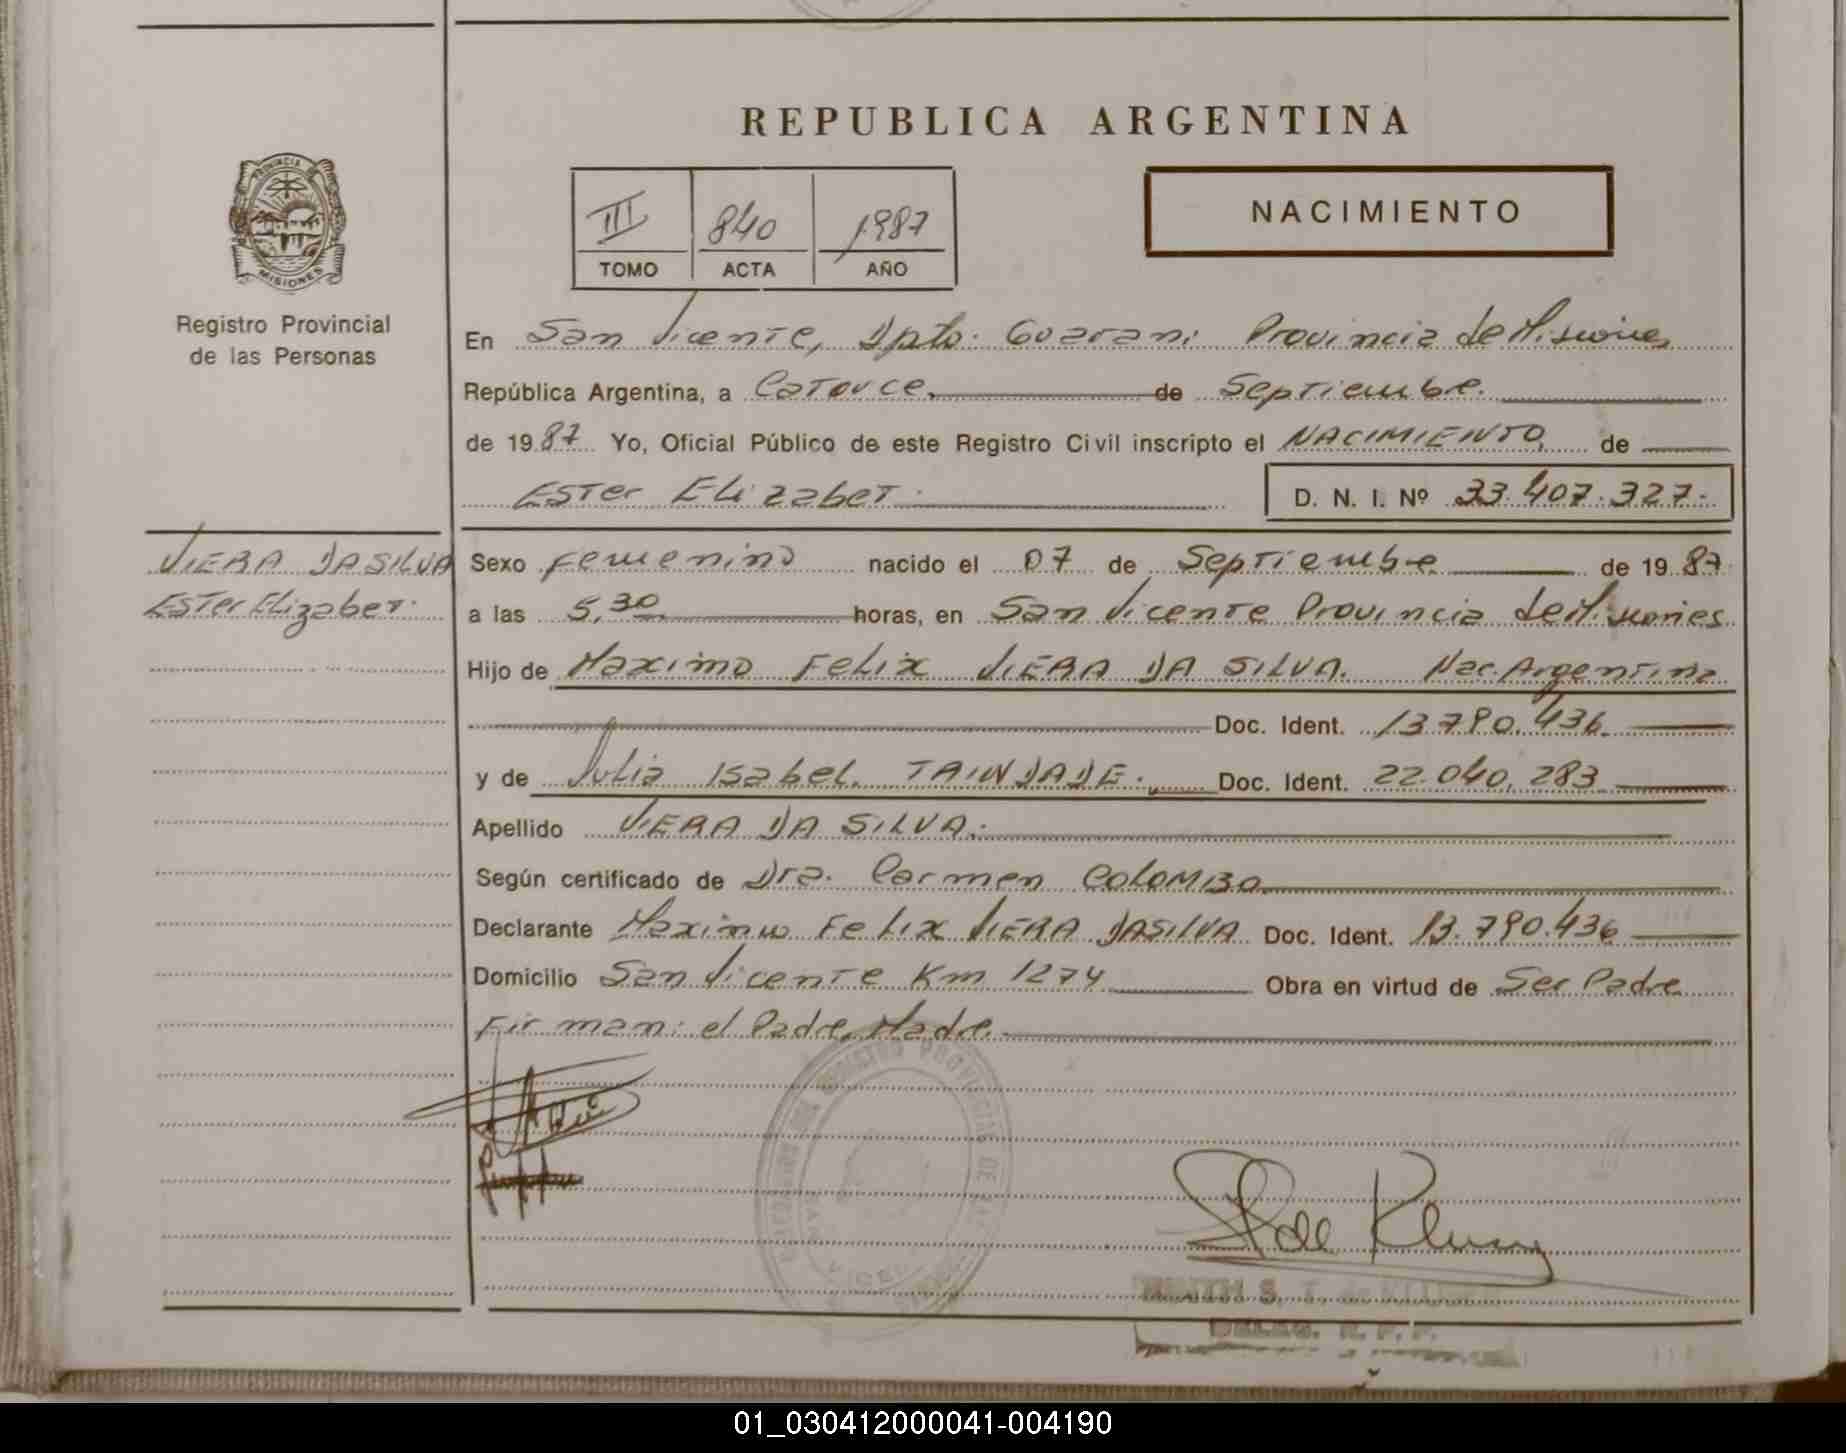 REPUBLICA ARGENTINA
PROVINCIA DE
MISIONES
Registro Provincial
de las Personas
III 840 1987
TOMO ACTA AÑO
NACIMIENTO
En San Vicente, Dpto. Guarani Provincia de Misiones
República Argentina, a Catorce de Septiembre.
de 1987 Yo, Oficial Público de este Registro Civil inscripto el NACIMIENTO de
Ester Elizabet. D. N. I. Nº 33.407.327.
VIERA DA SILVA
Ester Elizabet.
Sexo femenino nacido el 07 de Septiembre de 1987
a las 5,30 horas, en San Vicente Provincia de Misiones
Hijo de Maximo Felix VIERA DA SILVA. Nac. Argentina
Doc. Ident. 13.790.436.
y de Julia Isabel TRINDADE. Doc. Ident. 22.040.283
Apellido VIERA DA SILVA.
Según certificado de Dra. Carmen COLOMBO
Declarante Maximo Felix VIERA DA SILVA Doc. Ident. 13.790.436
Domicilio San Vicente Km 1274 Obra en virtud de Ser Padre
Firman: el Padre, Madre.
REGISTRO PROVINCIAL DE LAS
de Klumy
S. T. de
DELEG. R. P. P.
01_030412000041-004190